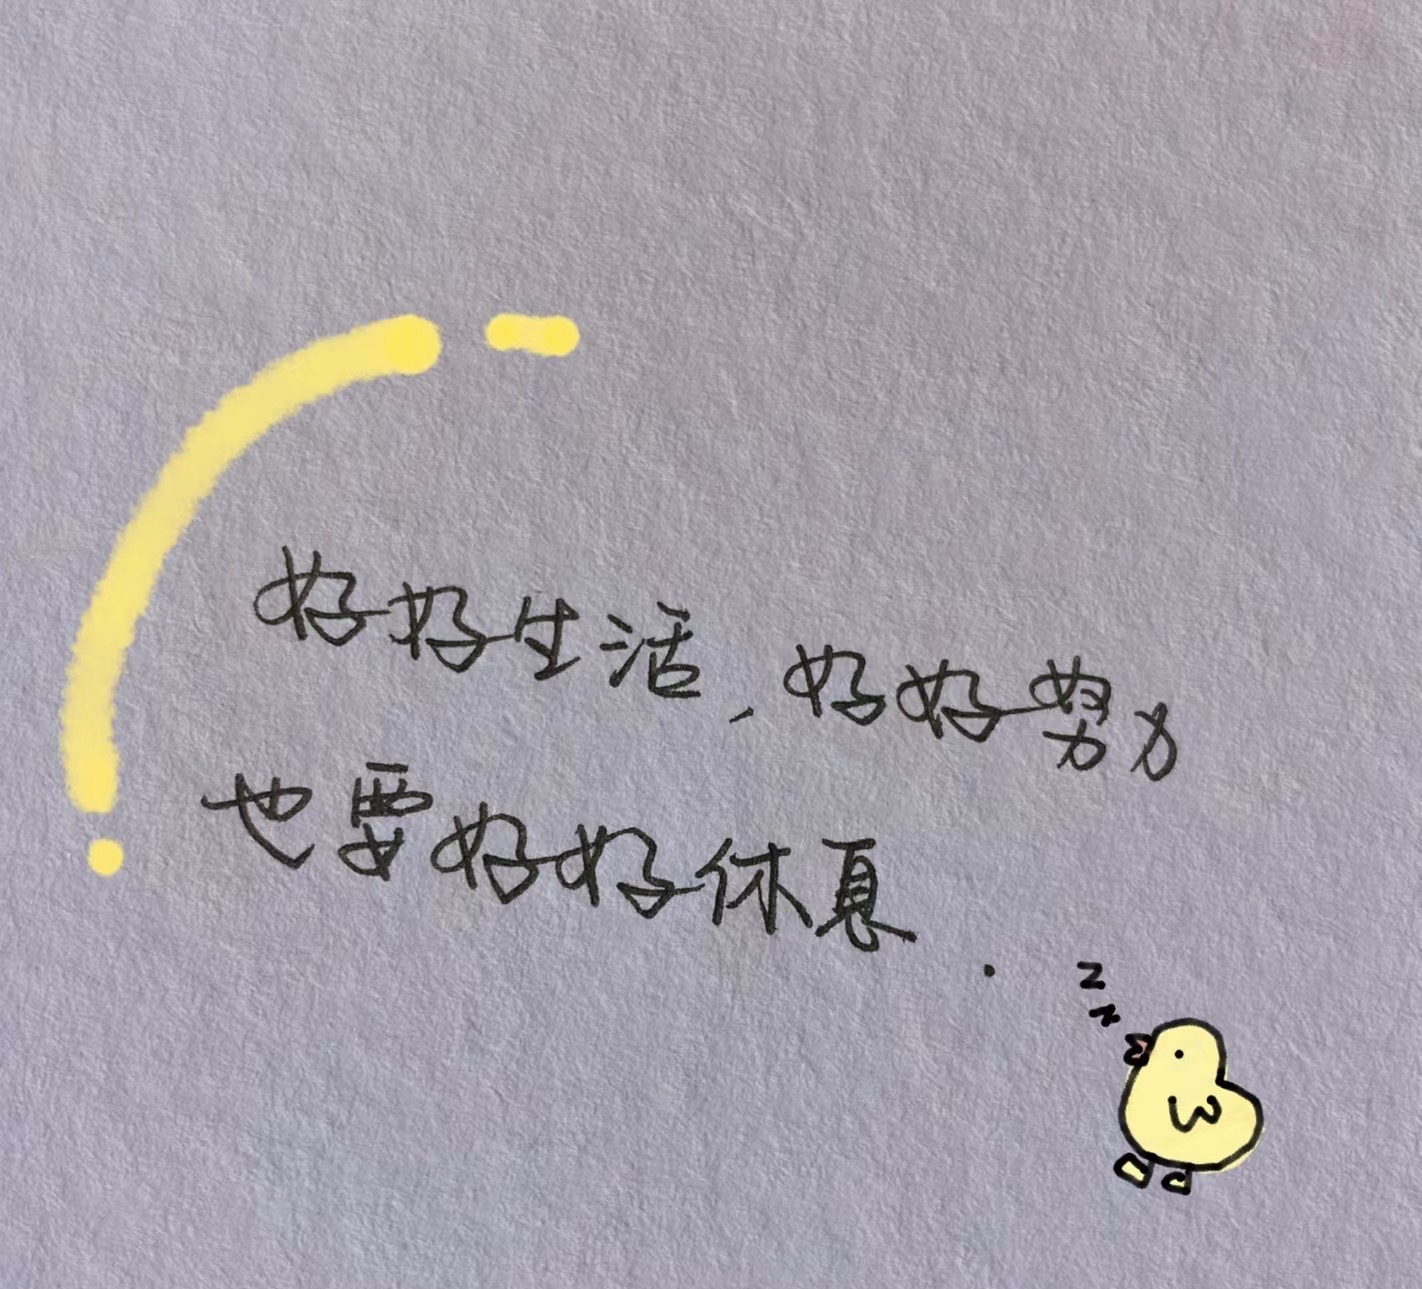 好好生活,好好努力
也要好好休息.
z
z